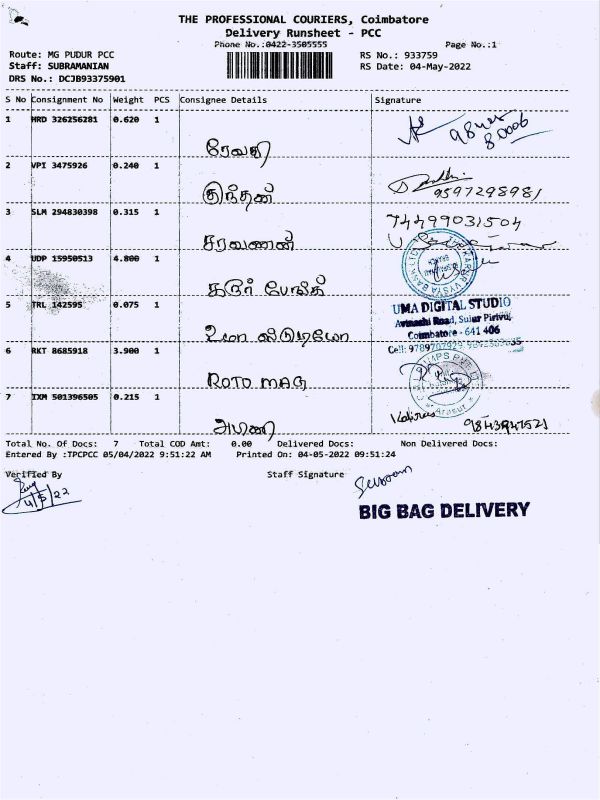 THE PROFESSIONAL COURIERS, Coimbatore
Delivery Runsheet - PCC
Phone No.:0422-3505555
Page No.:1
Route: MG PUDUR PCC
RS No.: 933759
Staff: SUBRAMANIAN
RS Date: 04-May-2022
DRS No.: DCJB93375901
S No Consignment No Weight PCS Consignee Details Signature
1 MRD 326256281 0.620 1
ரேவதி
2 VPI 3475926 0.240 1
9597298981
3 SLM 294830398 0.315 1
74499031504
சரவணன்
4 UDP 15950513 4.800 1
கரூர்
5 TRL 142595 0.075 1
UMA DIGITAL STUDIO
Avinashi Road, Sulur Pirivu,
Coimbatore - 641 406
உமா ஸ்டுடியோ
Cell: 9789707929
6 RKT 8685918 3.900 1
ROTO MAG
7 IXM 501396505 0.215 1
Total No. Of Docs: 7 Total COD Amt: 0.00 Delivered Docs: Non Delivered Docs:
Entered By :TPCPCC 05/04/2022 9:51:22 AM Printed On: 04-05-2022 09:51:24
Verified By Staff Signature
4/5/22
BIG BAG DELIVERY